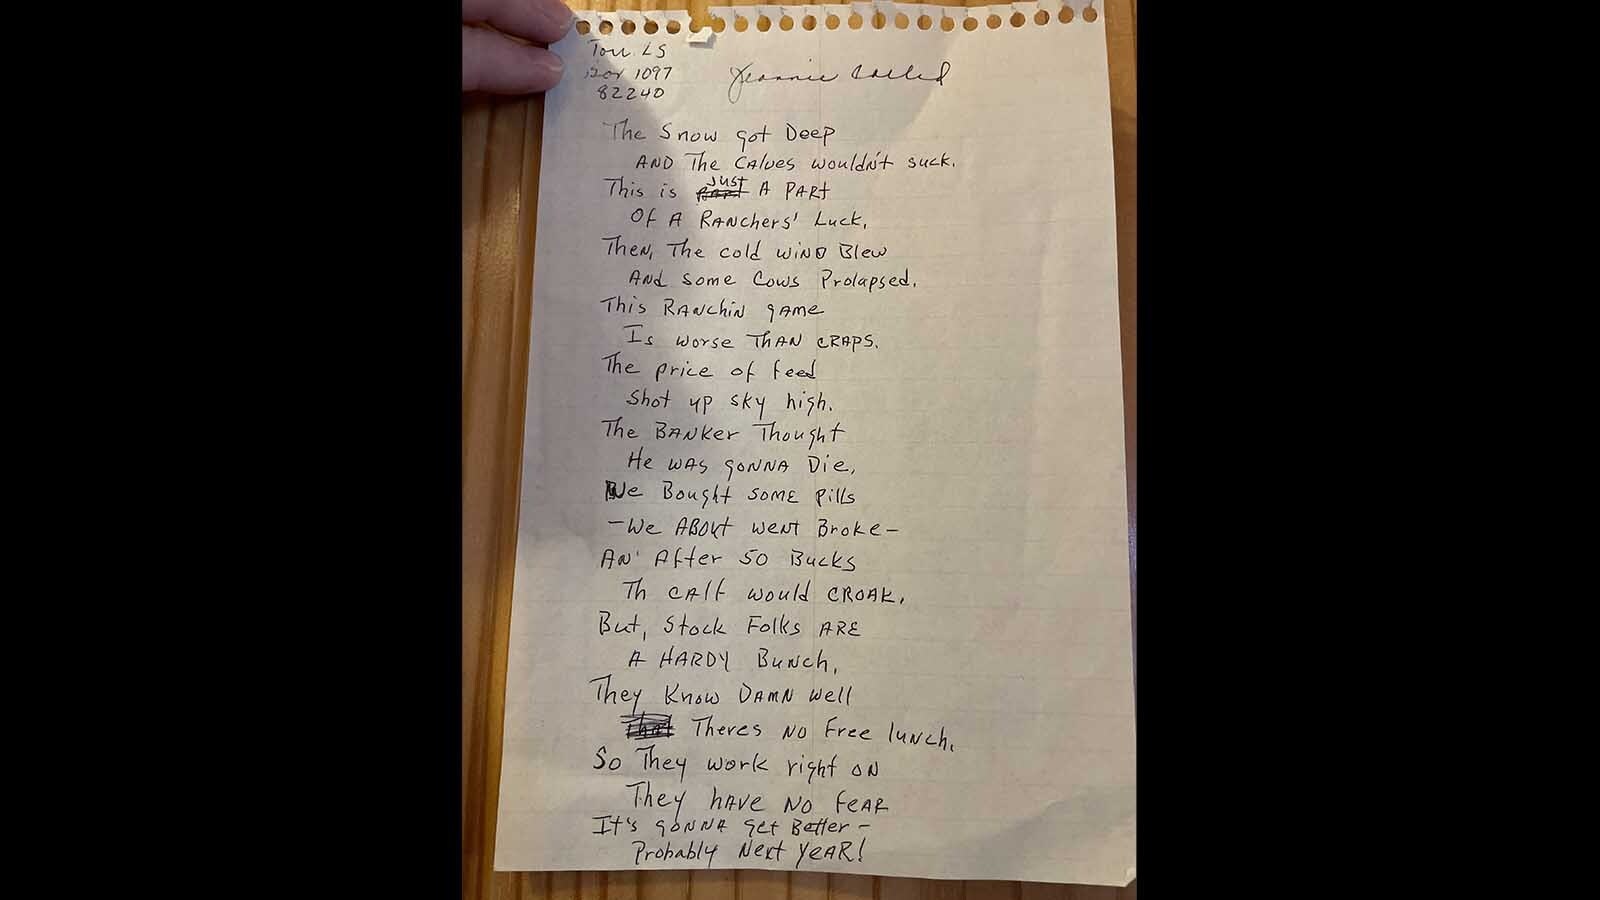 Torr. LS
Box 1097
82240
Jeannie Called
The Snow got Deep
AND The CALVES wouldn't suck.
This is just A PART
Of A RANchers' Luck,
Then, The cold WIND Blew
And some Cows Prolapsed.
This RANchin gAme
Is worse THAN CRAPS.
The price of feed
Shot up sky high.
The BANKer Thought
He WAS gONNA Die,
We Bought SOME pills
—We ABOUT went Broke—
AN' After 50 Bucks
Th CAlf would CROAK,
But, Stock Folks ARE
A HARDY Bunch,
They Know DAMN well
Theres NO Free lunch,
So They work right ON
They hAVE NO FeAR
It's gONNA get Better—
Probably Next YeAR!